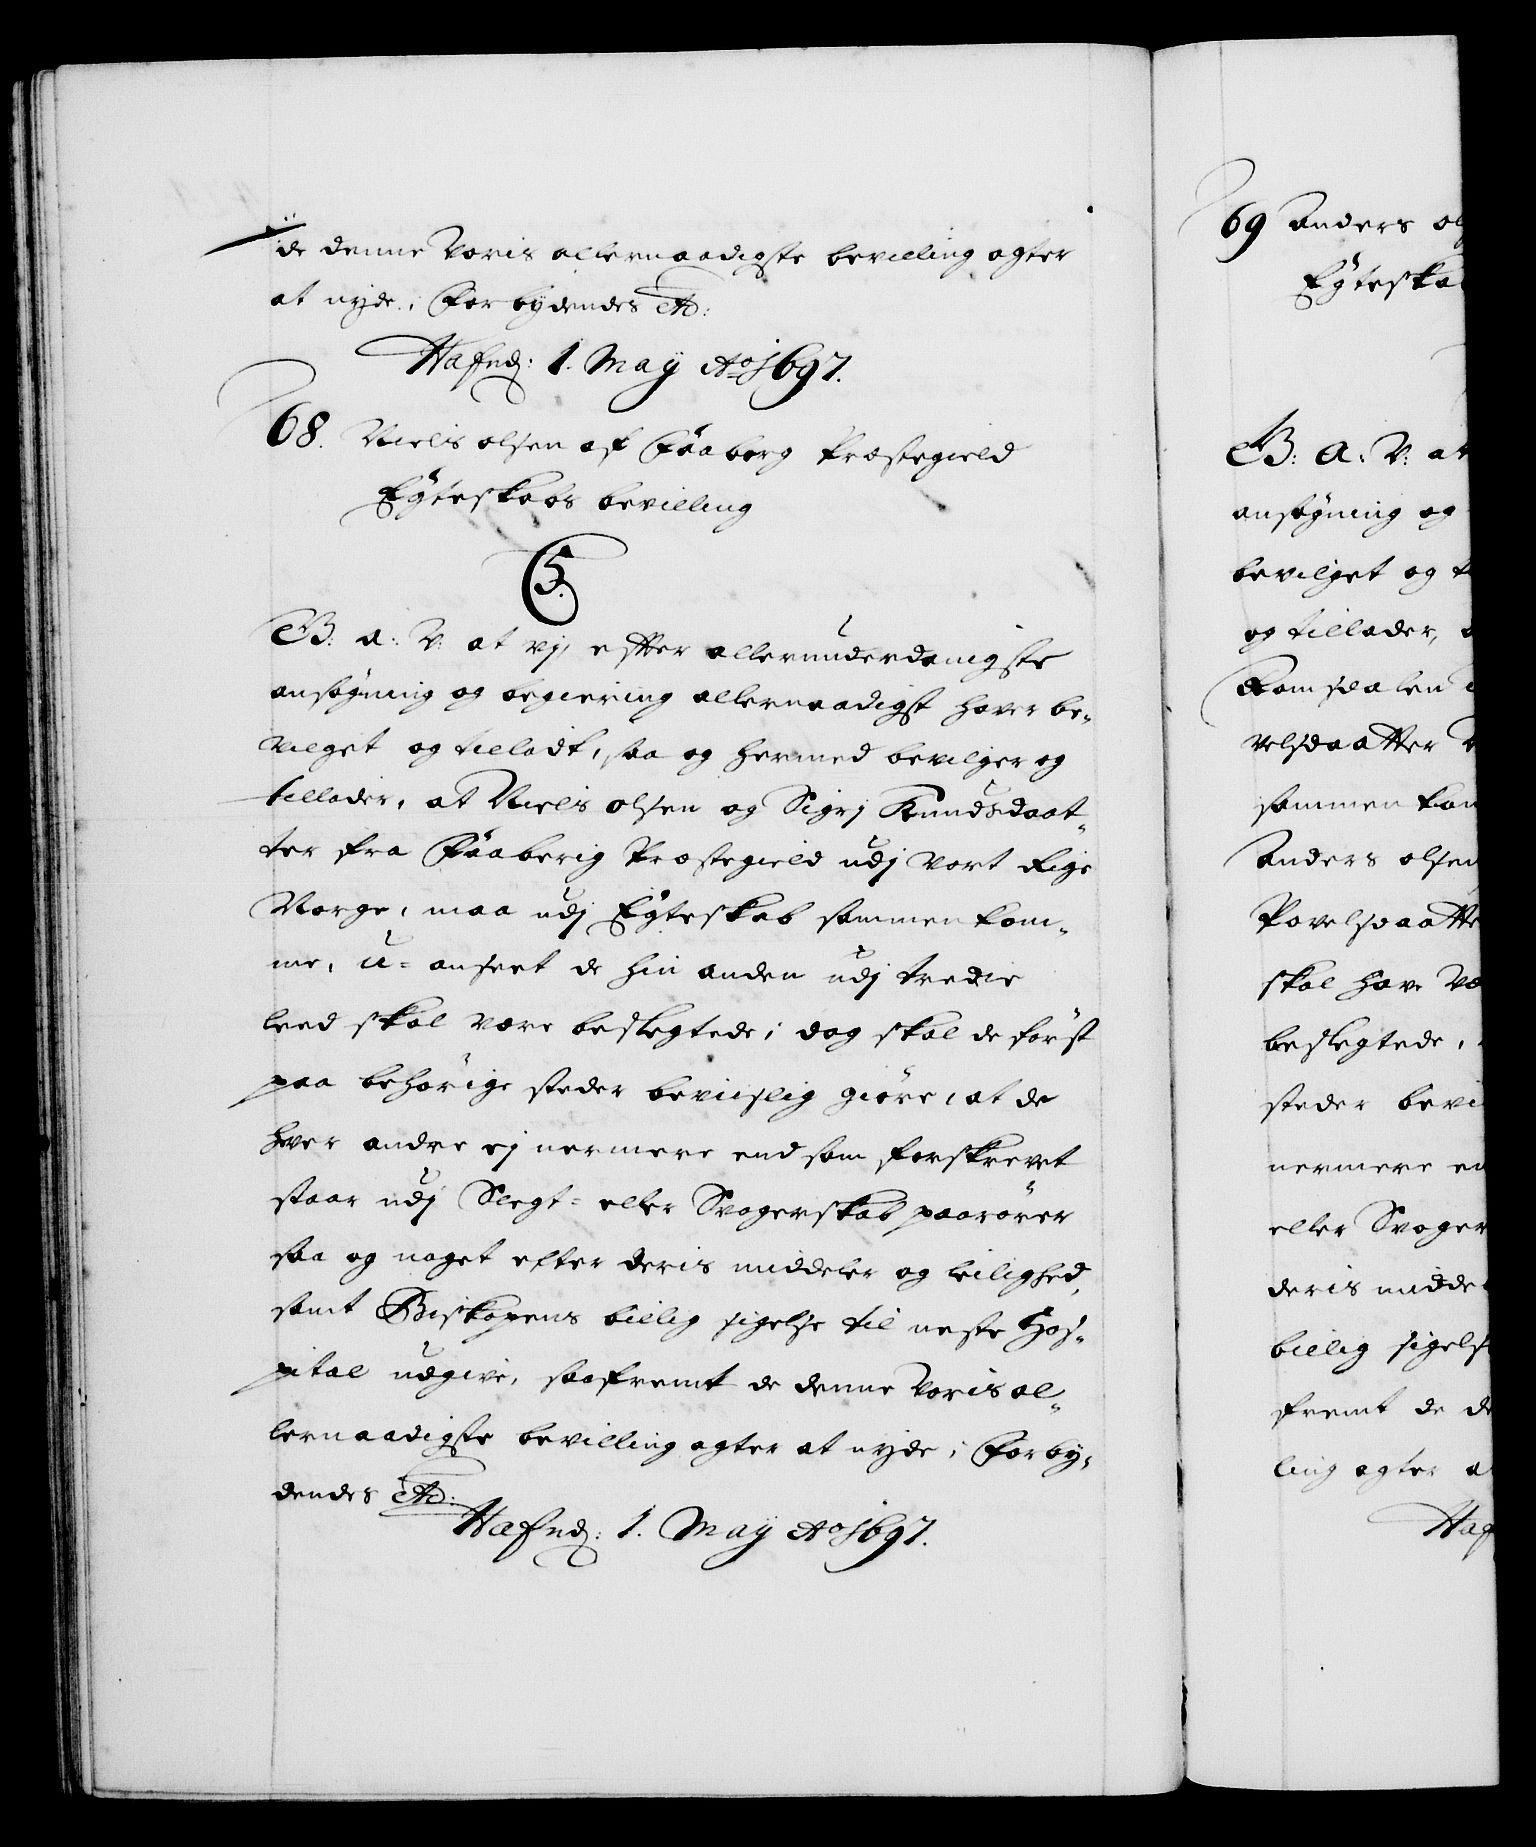 de denne Voris allernaadigste bevilling agter
at nyde, Forbydendes etc:
Hafnd: 1. May Ao 1697.
68. Niels olsen af Faaberg Præstegield
Egteskabs bevilling
C5.
G: a: V: at vj, efter allerunderdanigste
ansögning og begiering allernaadigst haver be-
vilget og tilladt, saa og hermed bevilger og
tillader, at Niels olsen og Sigrj Knudsdaat-
ter fra Faaberig Præstegield udj vort Rige
Norge, maa udj Egteskab sammenkom-
me, u-anseet de hin anden udj tredie
leed skal være beslegtede; dog skal de först
paa behörige steder beviislig giöre, at de
hver andre ej nermere end som forskrevet
staar udj Slegt- eller Svogerskab paarörer
saa og noget efter deris middeler og leilighed,
samt Biskopens billig sigelse til neste Hos-
pital udgive, saafremt de denne Voris al-
lernaadigste bevilling agter at nyde; Forby-
dendes etc:
Hafnd: 1. May Ao 1697.
69 Anders ol
Egteska
G: a: V: at
ansögning og
bevilget og t
og tillader, a
Romsdalen
velsdaatter
sammenkom
Anders olsen
Povelsdaatte
skal have væ
beslegtede,
steder bevi
nermere en
eller Svoger
deris midde
billig sigels
fremt de de
ling agter a
Haf